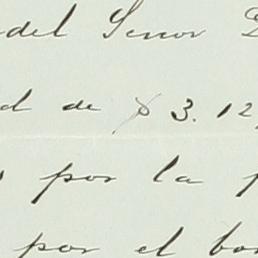 del Señor
de $ 3.12
por la
por el